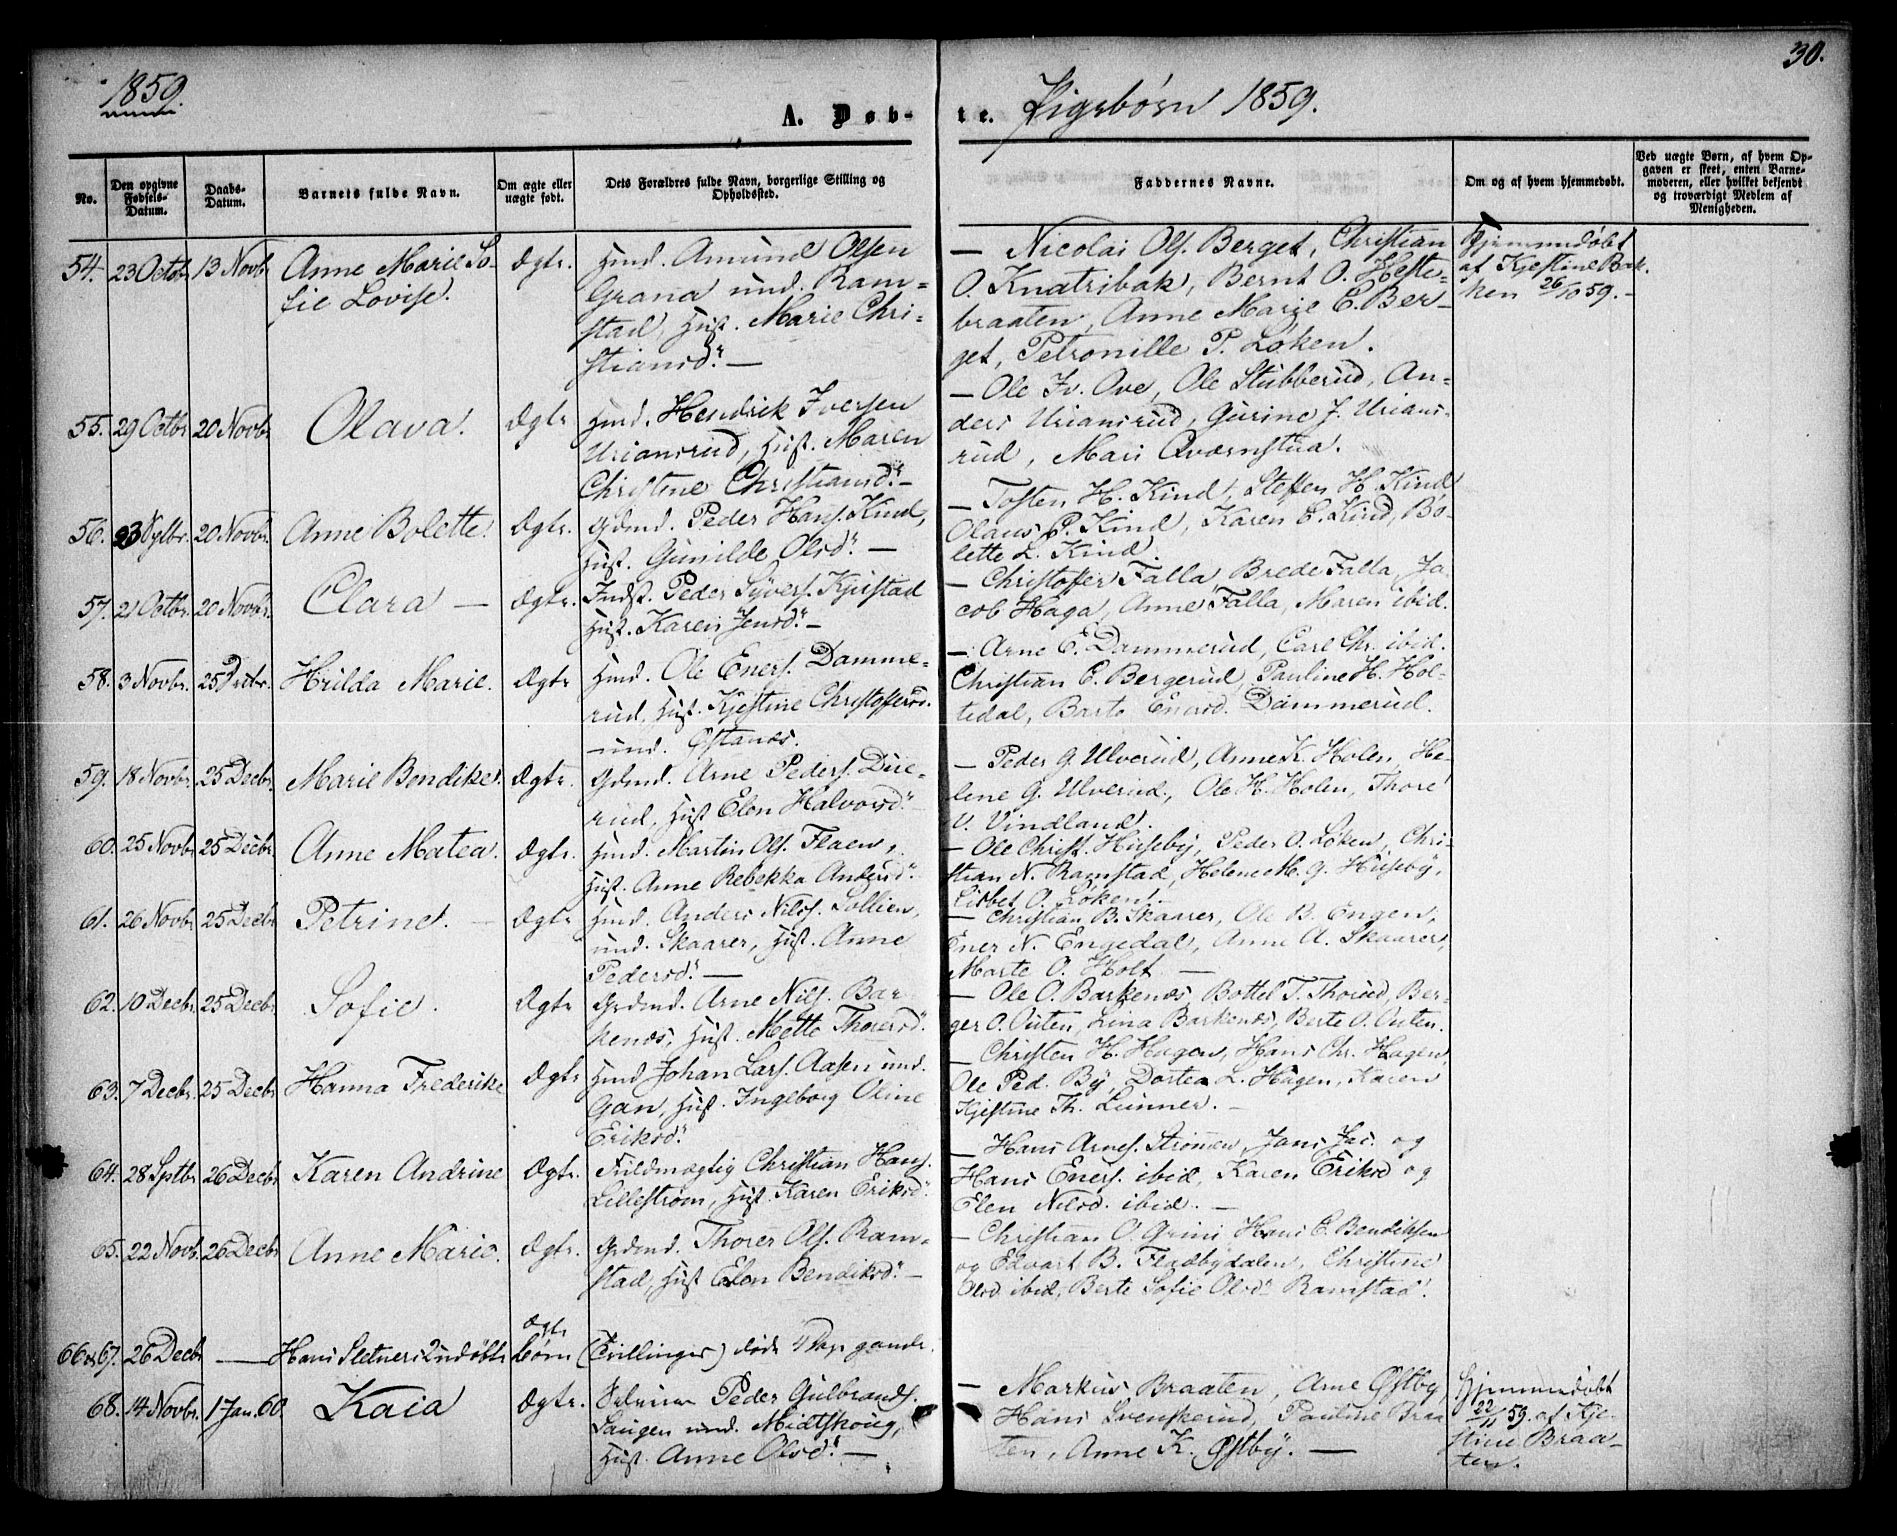 30.
1859.
A. Døb-
te. Pigebørn 1859.
No.
Den opgivne Fødsels-Datum.
Daabs-Datum.
Barnets fulde Navn.
Om ægte eller uægte født.
Dets Forældres fulde Navn, borgerlige Stilling og Opholdssted.
Faddernes Navne.
Om og af hvem hjemmedøbt.
Ved uægte Børn, af hvem Opgaven er skeet, enten Barnemoderen, eller hvilket bekjendt og troværdigt Medlem af Menigheden.
54. 23 Octbr. 13 Novbr. Anne Marie So-
fie Lovise. Ægte.
Hmd. Amund Olsen
Grana und. Ram-
stad, Hust. Marie Chri-
stiansd. —
— Nicolai Ols. Berget, Christian
O. Knatribak, Bernt O. Heste-
braaten, Anne Marie E. Ber-
get, Petronille P. Løken.
Hjemmedøbt
af Kjestine Bak-
ken 26/10 59. —
55. 29 Octbr. 20 Novbr. Olava. Ægte
Hmd. Hendrik Iversen
Uriansrud, Hust. Maren
Christine Christiansd. —
— Ole Iv. Ove, Ole Stubberud, An-
ders Uriansrud, Gurine J. Urians-
rud, Mari Qværnstua.
56. 20 Novbr. Anne Bolette. Ægte.
Grdmd. Peder Hans. Kind,
Hust. Gunilde Olsd. —
— Tosten H. Kind, Steffen H. Kind
Olaus P. Kind, Karen E. Kind, Bo-
lette L. Kind.
57. 21 Octbr. 20 Novbr. Clara — Ægte.
Indst. Peder Syvers. Kjustad
Hust. Karen Jensd. —
— Christoffer Falla, Brede Falla, Ja-
cob Haga, Anne Falla, Maren ibid.
58. 3 Novbr. 25 Decbr. Hilda Marie. Ægte
Hmd. Ole Eners. Damme-
rud, Hust. Kjestine Christoffersd.
und. Østanes.
— Arne E. Dammerud, Carl Chr. ibid.
Christian E. Bergerud, Pauline H. Hol-
tedal, Berte Enersd. Dammerud.
59. 18 Novbr. 25 Decbr. Marie Bendike. Ægte.
Grdmd. Arne Peders. Due-
rud, Hust Elen Halvorsd.
— Peder G. Ulverud, Anne K. Holen, He-
lene G. Ulverud, Ole H. Holen, Thore
V. Vindland.
60. 25 Novbr 25 Decbr. Anne Matea. Ægte.
Hmd. Martin Ols. Flaen,
Hust. Anne Rebekka Andersd.
— Ole Christ. Huseby, Peder O. Løken, Chri-
stian N. Ramstad, Helene M. G. Huseby,
Lisbet O. Løken. —
61. 26 Novbr 25 Decbr Petrine. — Ægte
Hmd. Anders Nils. Sollien,
und. Skaarer, Hust. Anne
Pedersd. —
— Christian B. Skaarer, Ole B. Engen,
Ener N. Engedal, Anne A. Skaarer,
Marte O. Holt —
62. 10 Decbr. 25 Decbr Sofie. Ægte
Grdmd. Arne Nils. Bar-
kenæs, Hust. Mette Thoresd.
— Ole O. Barkenæs, Bottel T. Thorud, Ber-
ger O. Outen, Lina Barkenæs, Berte O. Outen.
63. 7 Decbr. 25 Decbr Hanna Frederike Ægte
Hmd Johan Lars. Aasen und.
Gan, Hust. Ingeborg Oline
Eriksd.
— Christen H. Hagen, Hans Chr. Hagen,
Ole Ped. By, Dortea L. Hagen, Karen
Kjestine Th. Lunner. —
64. 28 Sptbr 26 Decbr Karen Andrine Ægte.
Fuldmægtig Christian Hans.
Lillestrøm, Hust. Karen Eriksd.
— Hans Arnes. Strømen, Jans Jac. og
Hans Eners. ibid, Karen Eriksd og
Elen Nilsd. ibid. —
65. 22 Novb. 26 Decbr Anne Marie. Ægte.
Grdmd. Thorer Ols. Ram-
stad, Hust Elen Bendiksd. —
— Christian O. Grini Hans E. Bendiksen
og Edvart B. Fladbydalen, Christine
Olsd ibid, Berte Sofie Olsd. Ramstad.
66 & 67. 26 Decbr — Hans Sletners 2 udøbte
Ægte
børn (Tvillinger) døde 4 Dage gamle.
68. 14 Novbr. 1 Jan. 60 Kaia Ægte.
Peder Gulbrands.
Haugen und. Midtskoug,
Hust. Anne Olsd. —
— Markus Braaten, Arne Østby,
Hans Svenskerud, Pauline Braa-
ten, Anne K. Østby. —
Hjemmedøbt
22/11 59. af Kje-
stine Braa-
ten.